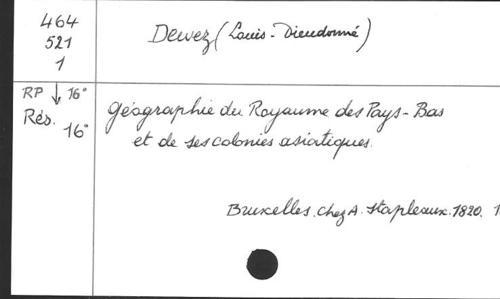 464
521
1
Dewez (Louis-Dieudonné)
RP ↓ 16°
Rés. 16°
géographie du Royaume des Pays-Bas
et de ses colonies asiatiques.
Bruxelles. chez A. Stapleaux. 1820. 1